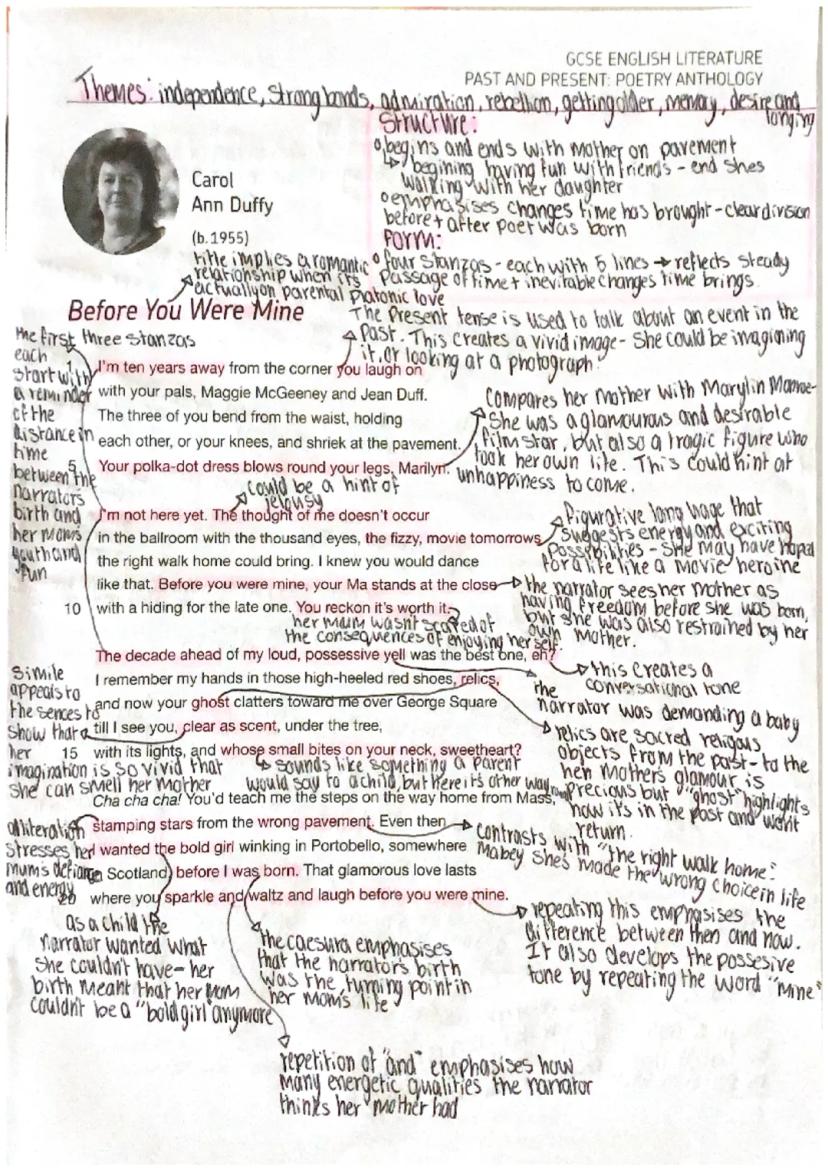 GCSE ENGLISH LITERATURE
PAST AND PRESENT: POETRY ANTHOLOGY
Themes: independence, strong bonds, admiration, rebellion, getting older, memory, desire and
longing
Structure:
begins and ends with mother on pavement
begining having fun with friends - end shes
walking with her daughter
emphasises changes time has brought - clear division
before + after poet was born
Form:
four stanzas - each with 5 lines → reflects steady
passage of time + inevitable changes time brings.
Carol
Ann Duffy
(b.1955)
title implies a romantic
relationship when its
actually on parental platonic love
Before You Were Mine
The present tense is used to talk about an event in the
past. This creates a vivid image - She could be imagining
it, or looking at a photograph.
the first three stanzas
each
start with
a reminder
of the
distance in
time
between the
narrators
birth and
her moms
youth and
fun
1 I'm ten years away from the corner you laugh on
with your pals, Maggie McGeeney and Jean Duff.
The three of you bend from the waist, holding
each other, or your knees, and shriek at the pavement.
5 Your polka-dot dress blows round your legs, Marilyn.
Compares her mother with Marylin Monroe-
She was a glamourous and desirable
film star, but also a tragic figure who
took her own life. This could hint at
unhappiness to come.
could be a hint of
jelousy
I'm not here yet. The thought of me doesn't occur
in the ballroom with the thousand eyes, the fizzy, movie tomorrows
the right walk home could bring. I knew you would dance
like that. Before you were mine, your Ma stands at the close
10 with a hiding for the late one. You reckon it's worth it.
figurative language that
suggests energy and exciting
possebilities - She may have hoped
for a life like a movie heroine
the narrator sees her mother as
having freedom before she was born,
but she was also restrained by her
own mother.
her mum wasn't scared of
the consequences of enjoying herself.
The decade ahead of my loud, possessive yell was the best one, eh?
I remember my hands in those high-heeled red shoes, relics,
and now your ghost clatters toward me over George Square
till I see you, clear as scent, under the tree,
15 with its lights, and whose small bites on your neck, sweetheart?
this creates a
conversational tone
the
narrator was demanding a baby
relics are sacred religous
objects from the past - to the
her mothers glamour is
precious but "ghost" highlights
now it's in the past and won't
return.
Simile
appeals to
the sences to
show that
her
imagination is so vivid that
she can smell her mother
sounds like something a parent
would say to a child, but here its other way
Cha cha cha! You'd teach me the steps on the way home from Mass,
stamping stars from the wrong pavement. Even then
I wanted the bold girl winking in Portobello, somewhere
in Scotland, before I was born. That glamorous love lasts
20 where you sparkle and waltz and laugh before you were mine.
alliteration
stresses her
mums defiance
and energy
contrasts with "the right walk home".
Mabey she's made the wrong choice in life
repeating this emphasises the
difference between then and now.
It also develops the possesive
tone by repeating the word "mine"
as a child the
narrator wanted what
she couldn't have - her
birth meant that her mom
couldn't be a "bold girl" anymore
the caesura emphasises
that the narrators birth
was the turning point in
her moms life
repetition of "and" emphasises how
many energetic qualities the narrator
thinks her mother had